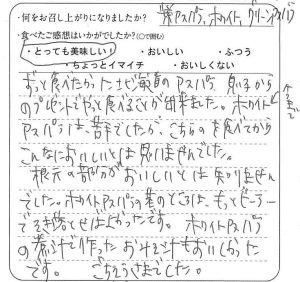 ・何をお召し上がりになりましたか？ 紫アスパラ、ホワイト、グリーンアスパラ
・食べたご感想はいかがでしたか？（○で囲む）
・とっても美味しい！ ・おいしい ・ふつう
・ちょっとイマイチ ・おいしくない
ずっと食べたかった アスパラ 息子から
のプレゼントでやっと食べることが出来ました。ホワイト
今まで
アスパラは、苦手でしたが、こちらのを食べてから
こんなにおいしいとは思いませんでした。
根元の部分がおいしいとは知りません
でした。ホワイトアスパラの 茎のところは、もっとピーラー
でそぎ落とせば よかったです。 ホワイトアスパラ
の 汁で作った おみそ汁もおいしかった
です。 ごちそうさまでした。